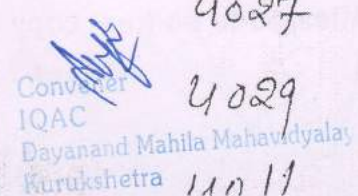 4027
Convener
4029
IQAC
Dayanand Mahila Mahavidyalay
Kurukshetra